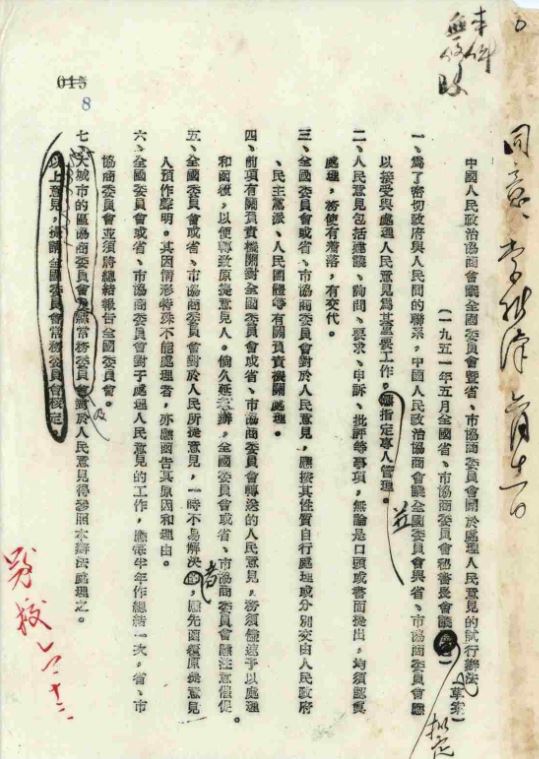 同意、李維漢 六月十二日
中國人民政治協商會議全國委員會暨省、市協商委員會關於處理人民意見的試行辦法
(一九五一年五月全國省、市協商委員會秘書長會議 草案)
一、爲了密切政府與人民間的聯系,中國人民政治協商會議全國委員會與省、市協商委員會應
以接受與處理人民意見爲其重要工作。並應指定專人管理。
二、人民意見包括建議、詢問、要求、申訴、批評等事項,無論是口頭或書面提出,均須認眞
處理,務使有着落,有交代。
三、全國委員會或省、市協商委員會對於人民意見,應按其性質自行處理或分別交由人民政府
、民主黨派、人民團體等有關負責機關處理。
四、前項有關負責機關對全國委員會或省、市協商委員會轉送的人民意見,務須儘速予以處理
和函復,以便轉致原提意見人。倘久延未辦,全國委員會或省、市協商委員會應注意催促。
五、全國委員會或省、市協商委員會對於人民所提意見,一時不易解決者,應先函復原提意見
人預作聲明。其因情形特殊不能處理者,亦應函告其原因和理由。
六、全國委員會或省、市協商委員會對于處理人民意見的工作,應每半年作總結一次,省、市
協商委員會並須將總結報告全國委員會。
七、大城市的區協商委員會及縣常務委員會對於人民意見得參照本辦法處理之。
以上意見,提請全國委員會常務委員會核定
045
8